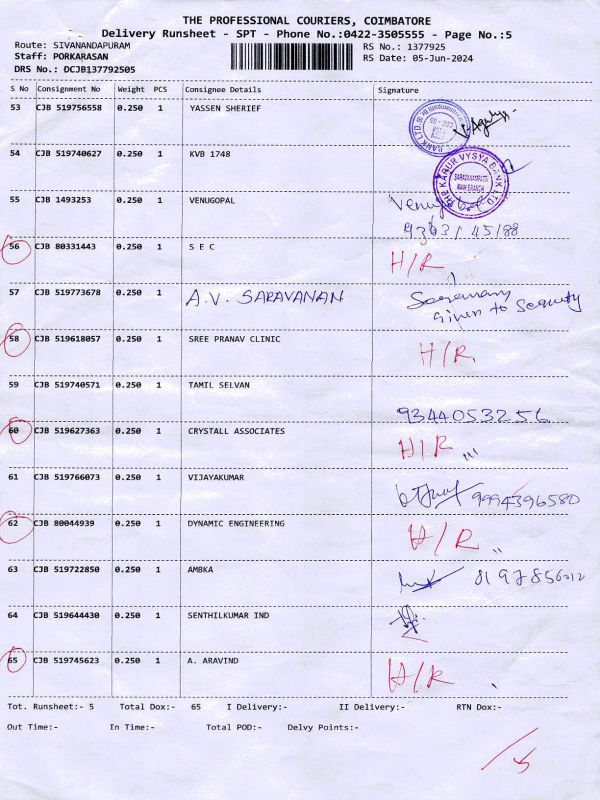 THE PROFESSIONAL COURIERS, COIMBATORE
Delivery Runsheet - SPT - Phone No.:0422-3505555 - Page No.:5
Route: SIVANANDAPURAM RS No.: 1377925
Staff: PORKARASAN RS Date: 05-Jun-2024
DRS No.: DCJB137792505
S No Consignment No Weight PCS Consignee Details Signature
53 CJB 519756558 0.250 1 YASSEN SHERIEF
54 CJB 519740627 0.250 1 KVB 1748
THE KARUR VYSYA BANK LTD
55 CJB 1493253 0.250 1 VENUGOPAL Venugopal
56 CJB 80331443 0.250 1 S E C H/R
57 CJB 519773678 0.250 1 A.V. SARAVANAN
given to Security
58 CJB 519618057 0.250 1 SREE PRANAV CLINIC H/R.
59 CJB 519740571 0.250 1 TAMIL SELVAN 9344053256
60 CJB 519627363 0.250 1 CRYSTALL ASSOCIATES H/R
61 CJB 519766073 0.250 1 VIJAYAKUMAR 9994396580
62 CJB 80044939 0.250 1 DYNAMIC ENGINEERING H/R
63 CJB 519722850 0.250 1 AMBKA
64 CJB 519644430 0.250 1 SENTHILKUMAR IND
65 CJB 519745623 0.250 1 A. ARAVIND H/R
Tot. Runsheet:- 5 Total Dox:- 65 I Delivery:- II Delivery:- RTN Dox:-
Out Time:- In Time:- Total POD:- Delvy Points:-